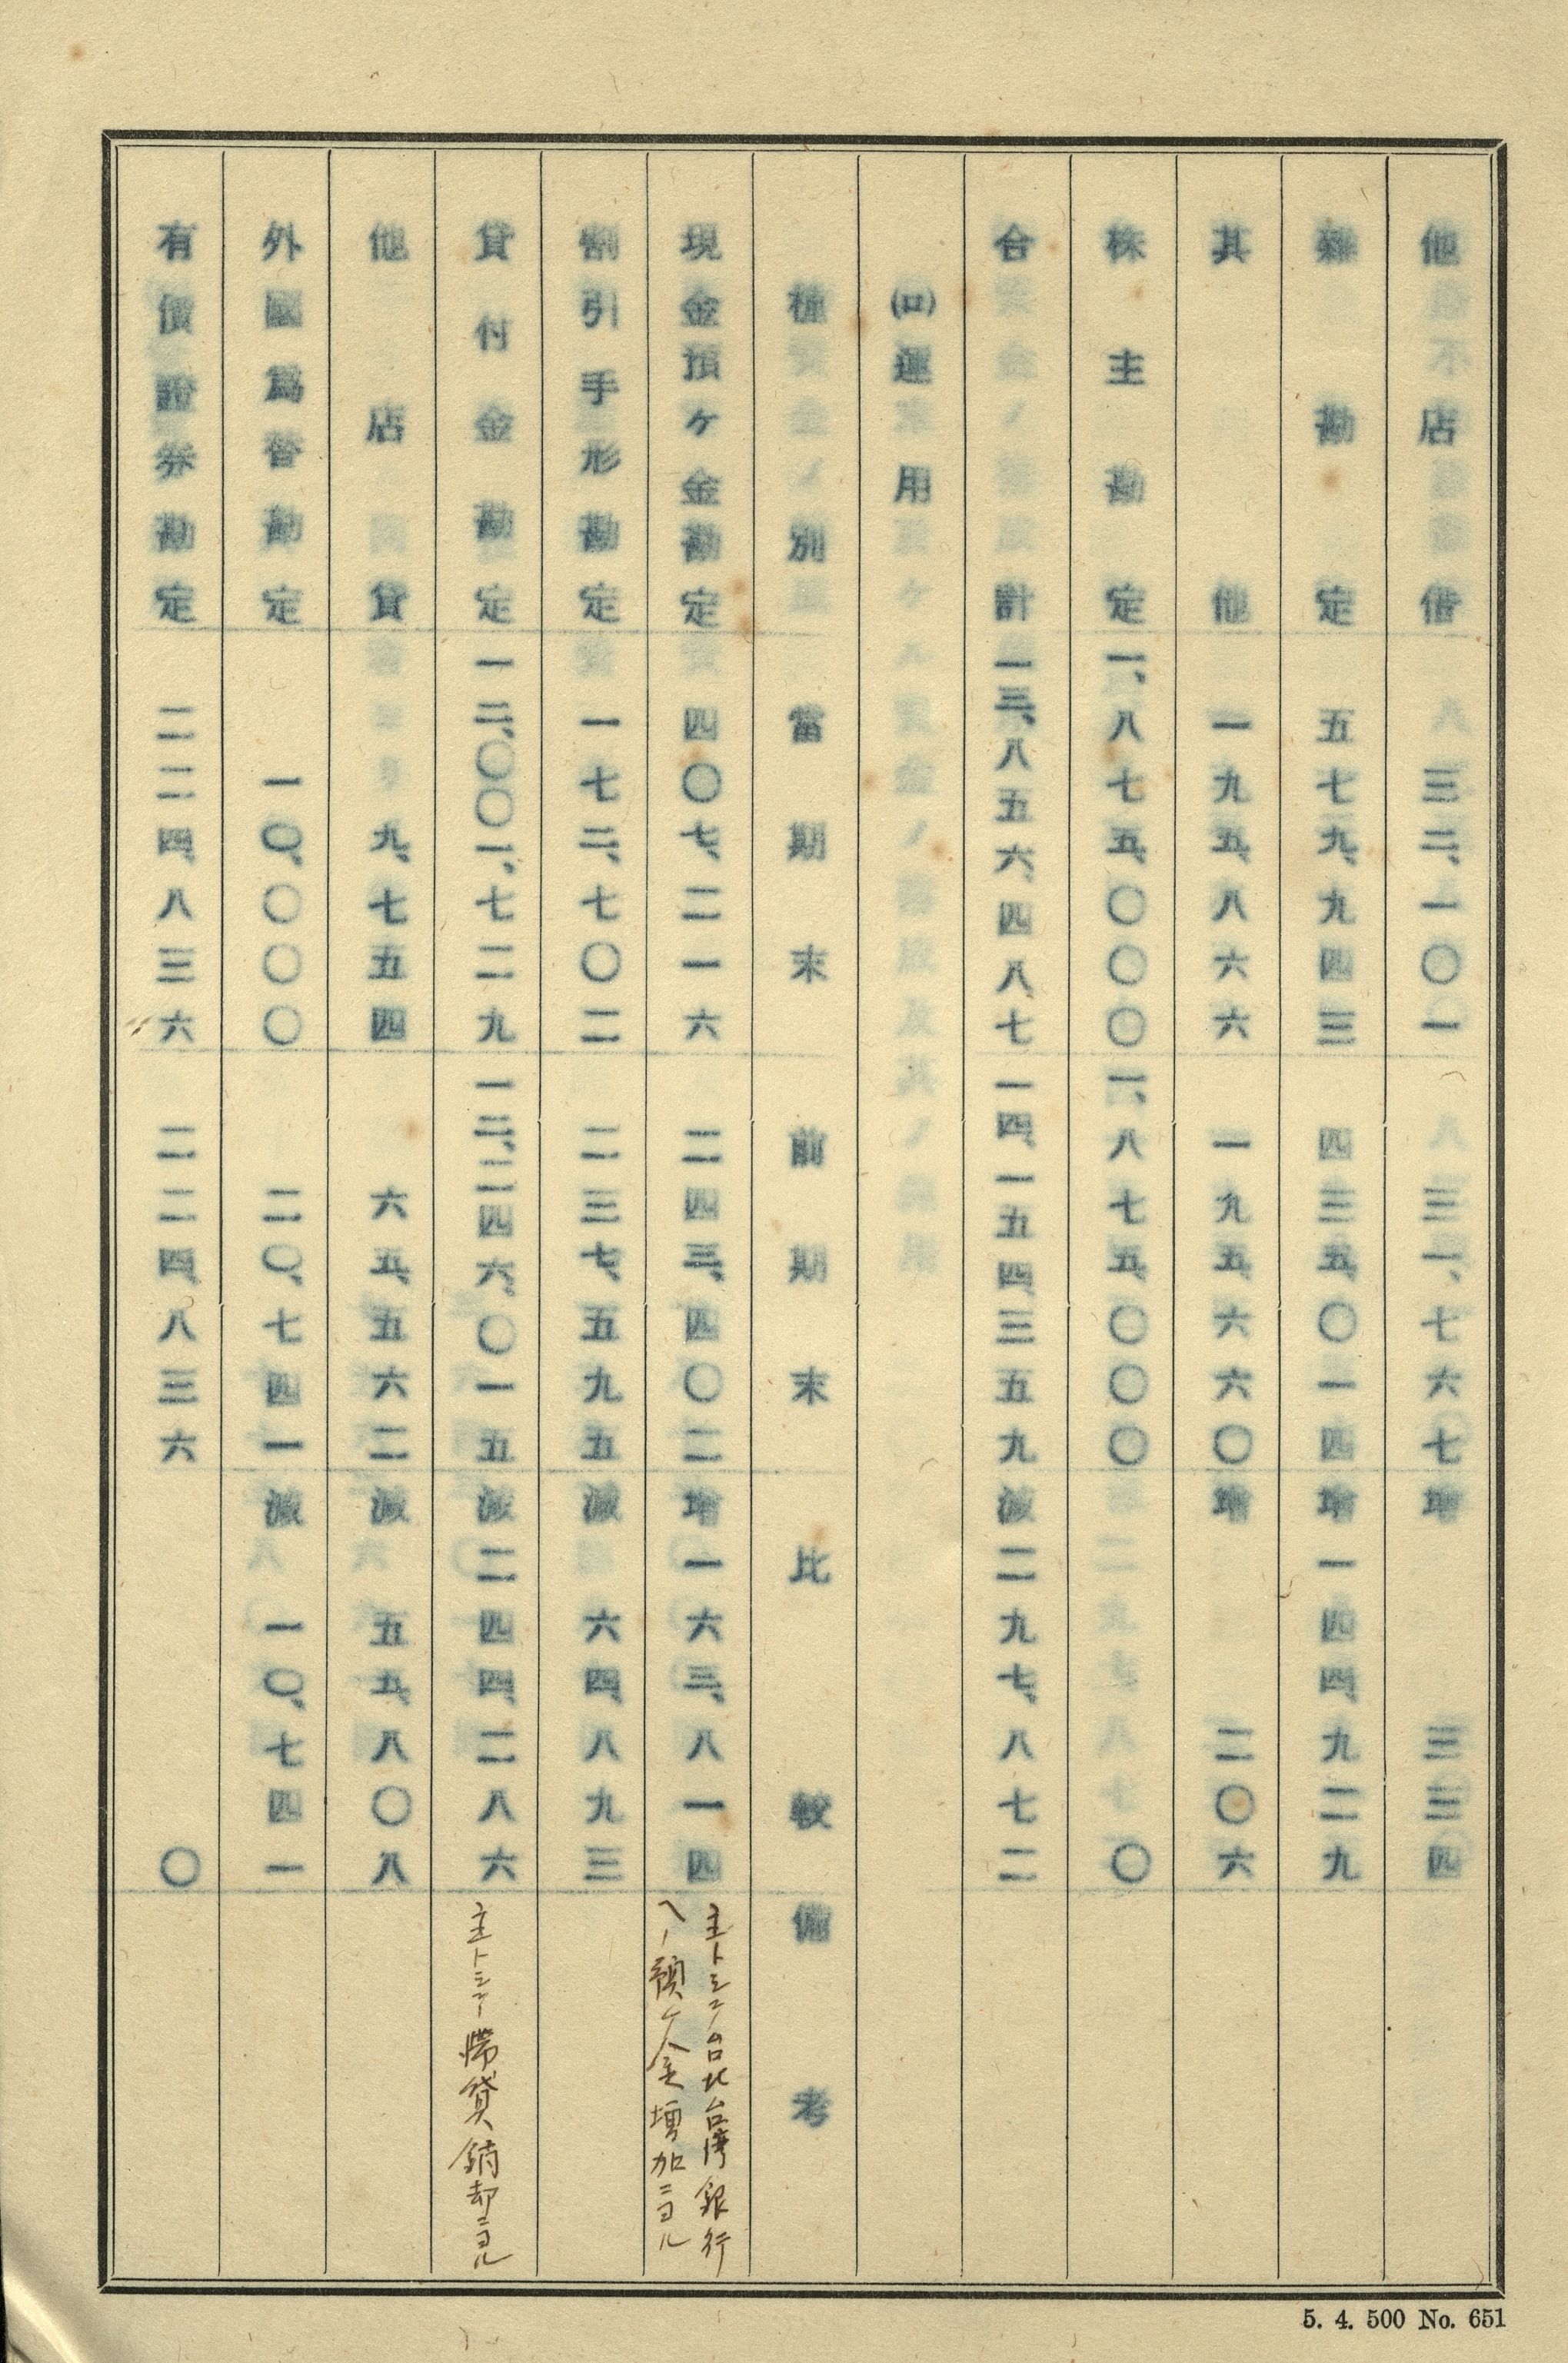 他店借 三二、一〇一 三一、七六七 增 三三四
雜勘定 五七九、九四三 四三五、〇一四 增 一四四、九二九
其他 一九五、八六六 一九五、六六〇 增 二〇六
株主勘定 一、八七五、〇〇〇 一、八七五、〇〇〇 〇
合計 一三、八五六、四八七 一四、一五四、三五九 減 二九七、八七二
(ロ)運用
種別 當期末 前期末 比較 備考
現金預ケ金勘定 四〇七、二一六 二四三、四〇二 增 一六三、八一四 主トシテ台北台湾銀行
ヘノ預ケ金増加ニヨル
割引手形勘定 一七二、七〇二 二三七、五九五 減 六四、八九三
貸付金勘定 一二、〇〇一、七二九 一二、二四六、〇一五 減 二四四、二八六 主トシテ滞貸銷却ニヨル
他店貸 九、七五四 六五、五六二 減 五五、八〇八
外國爲替勘定 一〇、〇〇〇 二〇、七四一 減 一〇、七四一
有價證券勘定 二二四、八三六 二二四、八三六 〇
5. 4. 500 No. 651